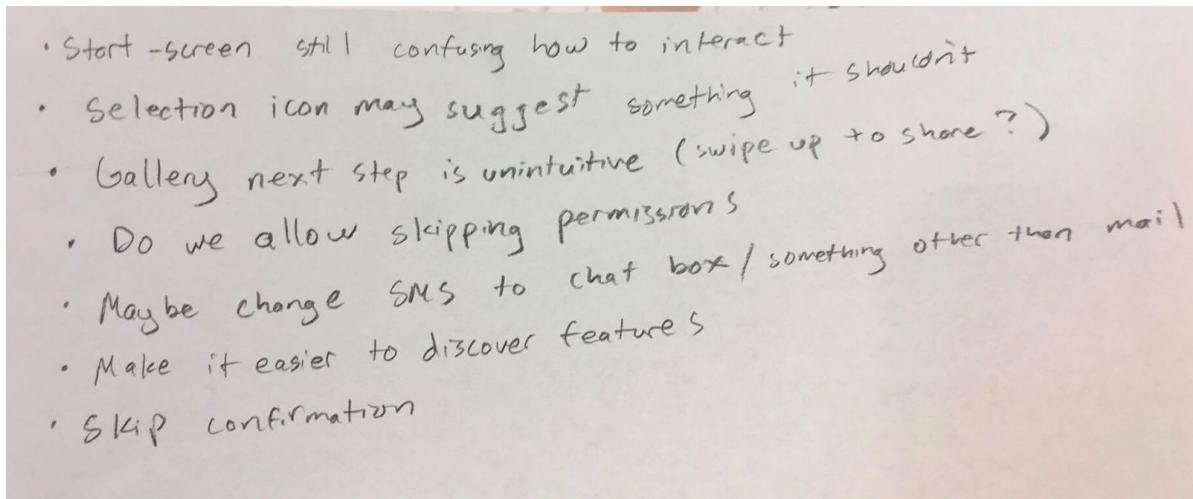 · Start-screen still confusing how to interact
· Selection icon may suggest something it shouldn't
· Gallery next step is unintuitive (swipe up to share?)
· Do we allow skipping permissions
· Maybe change SMS to chat box / something other than mail
· Make it easier to discover features
· Skip confirmation